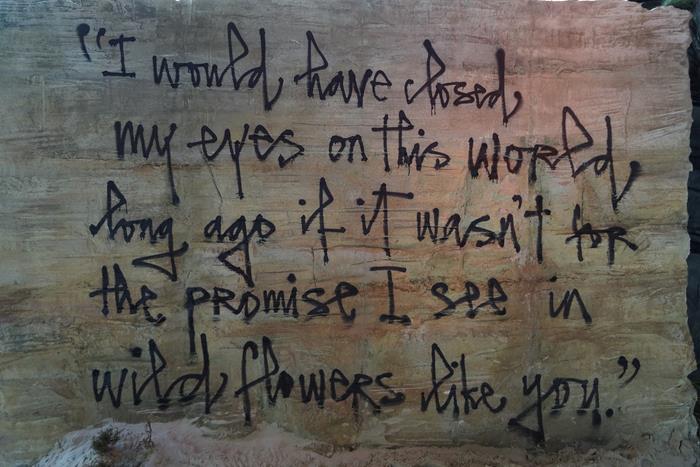 “I would have closed
my eyes on this world,
long ago if it wasn't for
the promise I see in
wild flowers like you.”